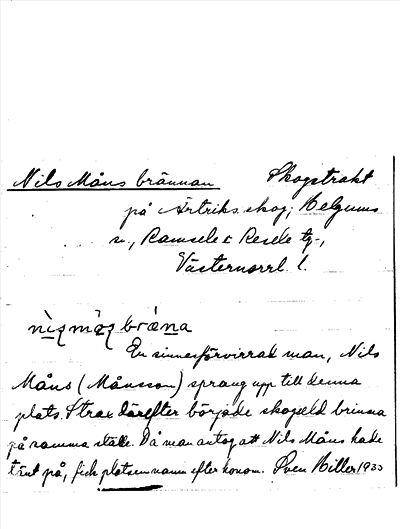 Nils Måns brännan Skogstrakt
på Ärtriks skog, Helgums
sn, Ramsele & Resele tg,
Västernorrl. l.
En sinnesförvirrad man, Nils
Måns (Månsson) sprang upp till denna
plats. Strax därefter började skogseld brinna
på samma ställe. Då man antog att Nils Måns hade
tänt på, fick platsen namn efter honom. Sven Hiller 1933